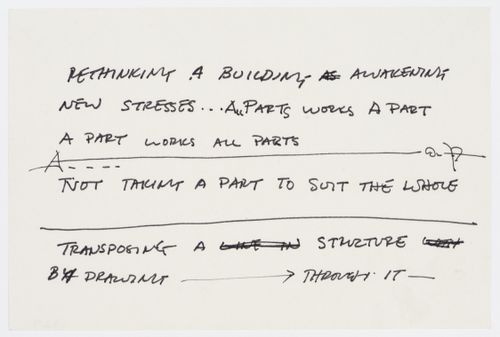 RETHINKING A BUILDING AS AWAKENING
NEW STRESSES... A PARTS WORKS A PART
A PART WORKS ALL PARTS
A - - - - -
NOT TAKING A PART TO SUIT THE WHOLE
TRANSPOSING A LINE IN STRUCTURE
BY DRAWING → THROUGH IT —